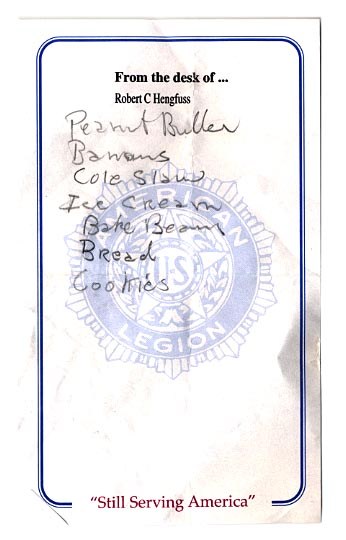 From the desk of ...
Robert C Hengfuss
Peanut Butter
Banans
Cole Slaw
Ice Cream
Bake Beans
Bread
Cookies
AMERICAN
U.S
LEGION
"Still Serving America"